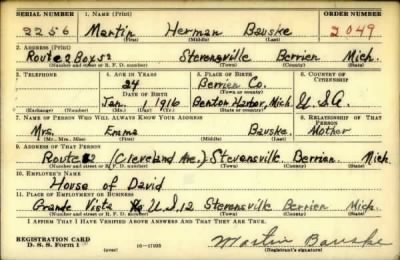 SERIAL NUMBER 1. NAME (Print) ORDER NUMBER
2256 Martin Herman Bauske 2049
(First) (Middle) (Last)
2. ADDRESS (Print)
Route 2 Box 52 Stevensville Berrien Mich.
(Number and street or R. F. D. number) (Town) (County) (State)
3. TELEPHONE 4. AGE IN YEARS 5. PLACE OF BIRTH 6. COUNTRY OF CITIZENSHIP
24 Berrien Co.
DATE OF BIRTH (Town or county)
Jan. 1 1916 Benton Harbor, Mich. U.S.A.
(Exchange) (Number) (Mo.) (Day) (Yr.) (State or country)
7. NAME OF PERSON WHO WILL ALWAYS KNOW YOUR ADDRESS 8. RELATIONSHIP OF THAT PERSON
Mrs. Emma Bauske. Mother
(Mr., Mrs., Miss) (First) (Middle) (Last)
9. ADDRESS OF THAT PERSON
Route 2 (Cleveland Ave.) Stevensville Berrien Mich.
(Number and street or R. F. D. number) (Town) (County) (State)
10. EMPLOYER'S NAME
House of David
11. PLACE OF EMPLOYMENT OR BUSINESS
Grande Vista U.S. 12 Stevensville Berrien Mich.
(Number and street or R. F. D. number) (Town) (County) (State)
I AFFIRM THAT I HAVE VERIFIED ABOVE ANSWERS AND THAT THEY ARE TRUE.
REGISTRATION CARD
D. S. S. Form 1 (over) Martin Bauske
(Registrant's signature)